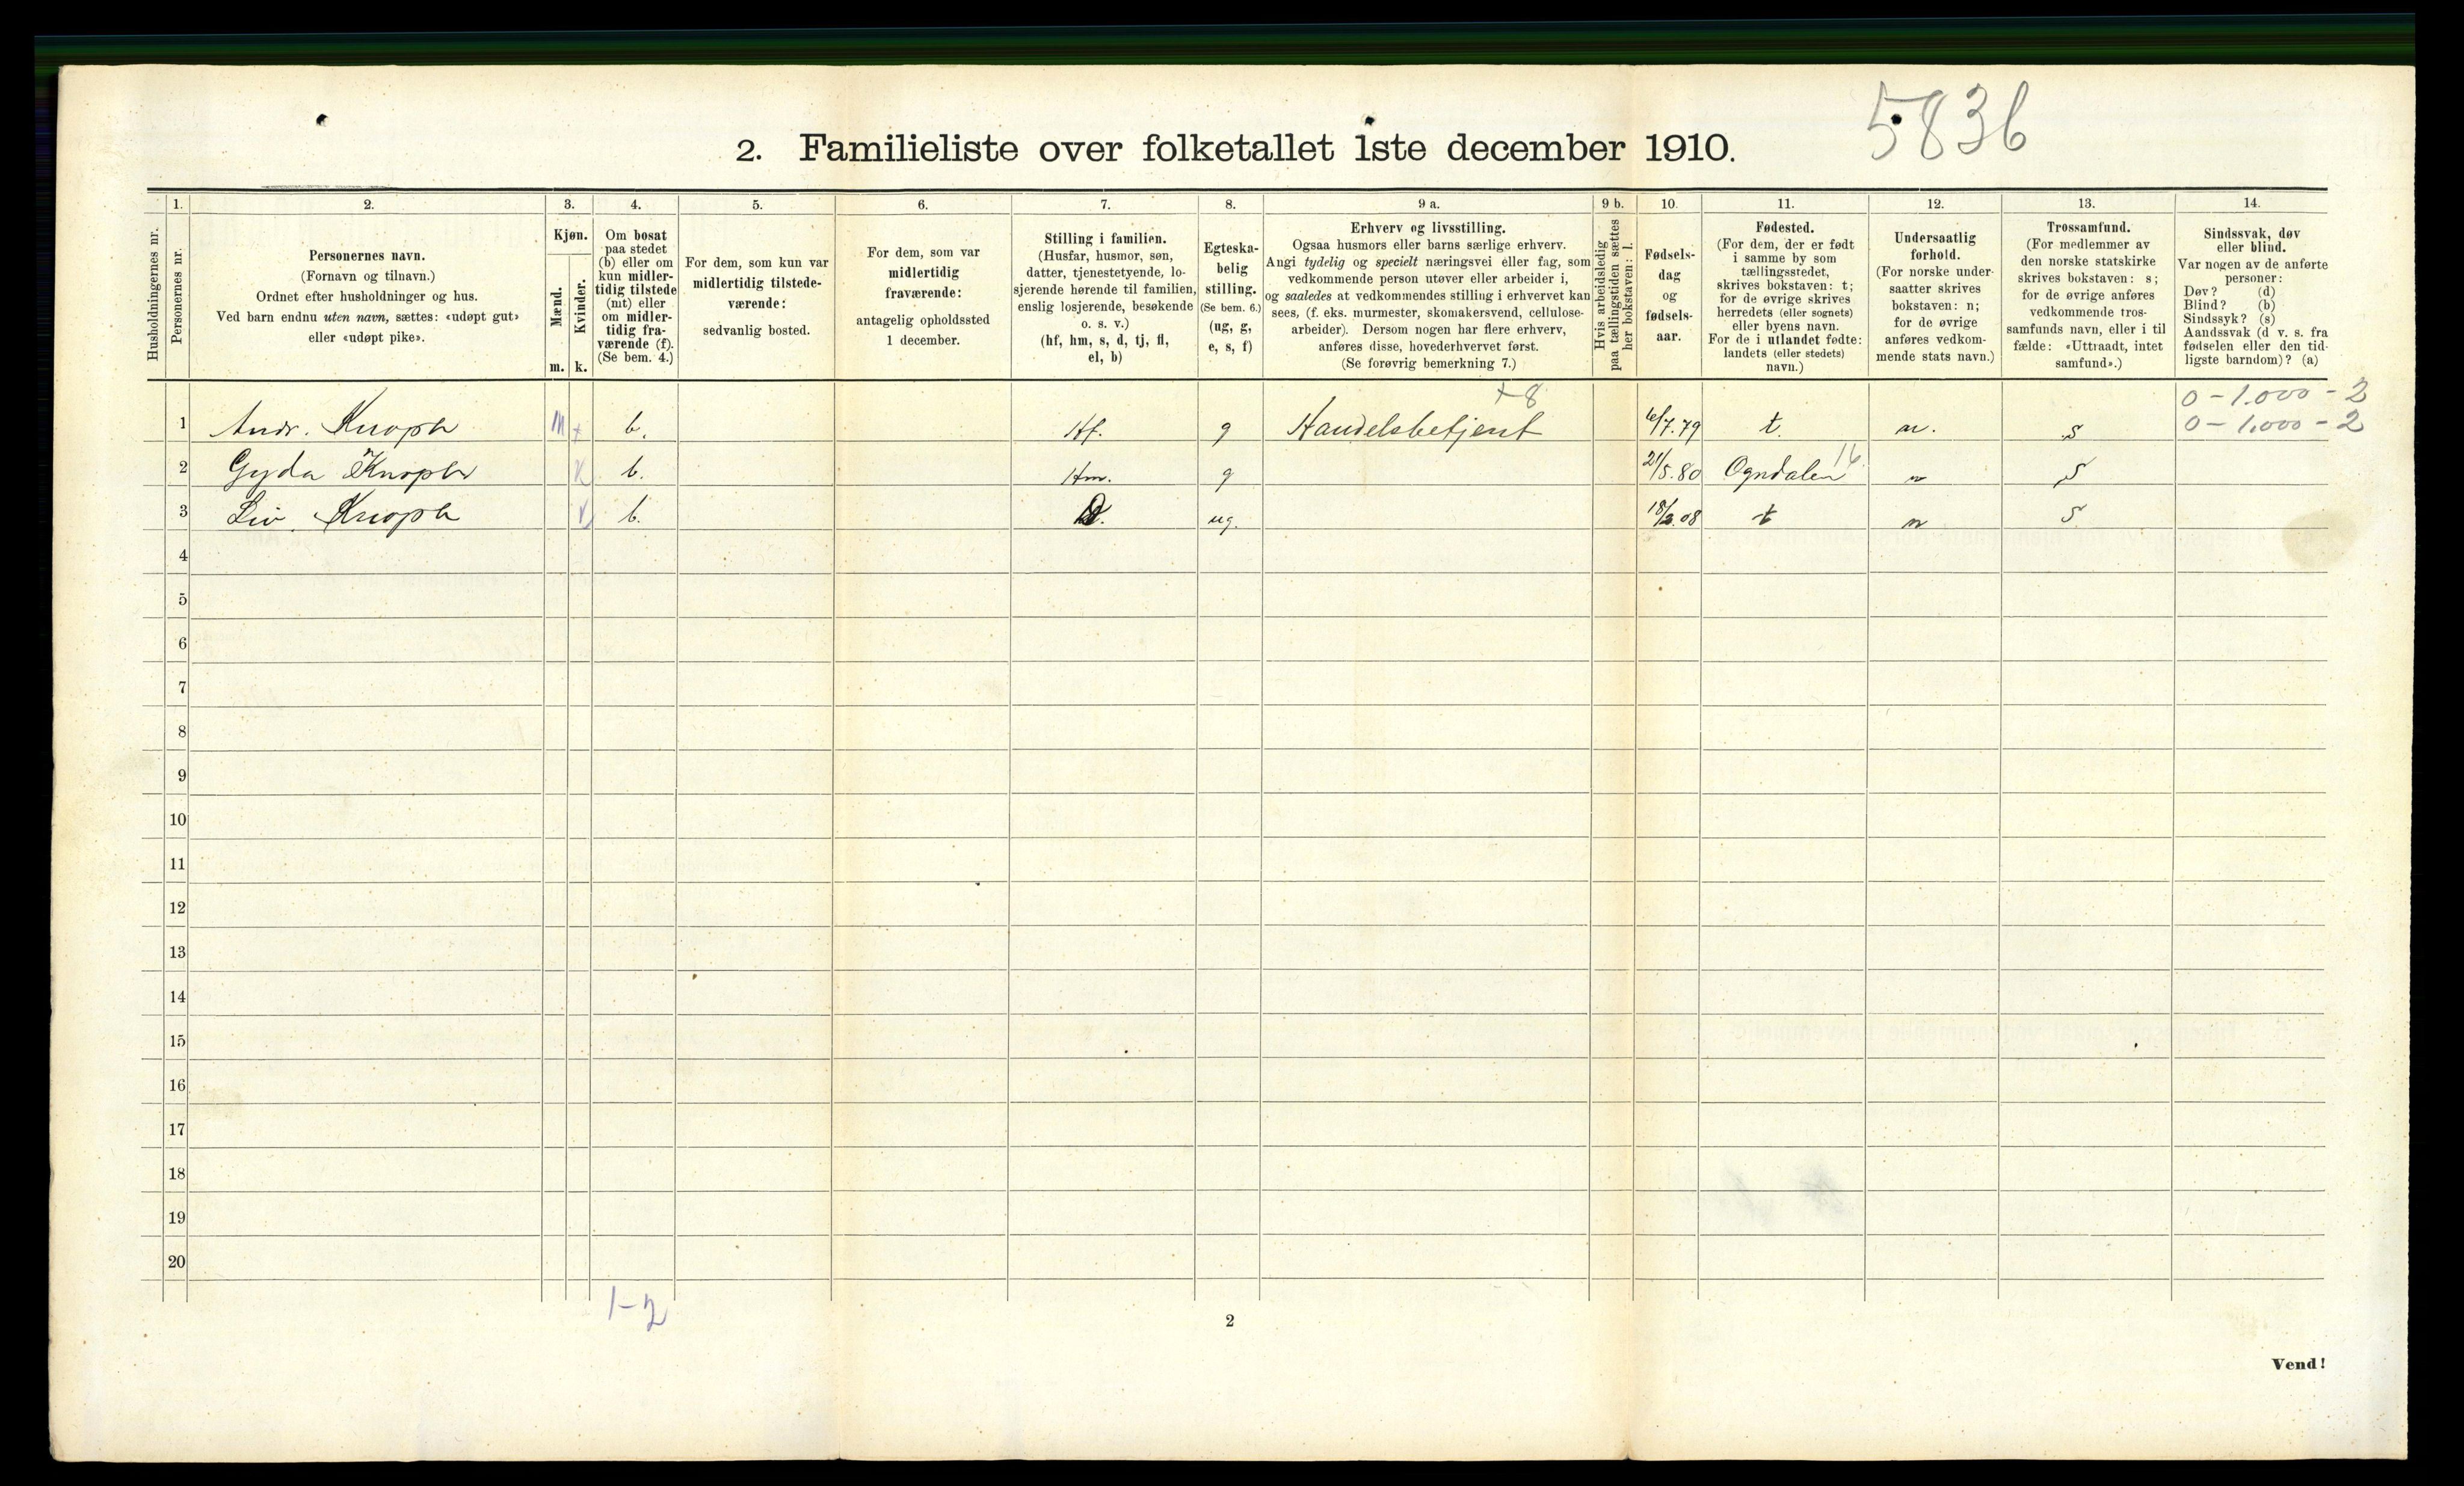 5836
2. Familieliste over folketallet 1ste december 1910.
Husholdningernes nr.
1.
Personernes nr.
2.
Personernes navn.
(Fornavn og tilnavn.)
Ordnet efter husholdninger og hus.
Ved barn endnu uten navn, sættes: «udøpt gut»
eller «udøpt pike».
3.
Kjøn.
Mænd.
Kvinder.
m. k.
4.
Om bosat
paa stedet
(b) eller om
kun midler-
tidig tilstede
(mt) eller
om midler-
tidig fra-
værende (f).
(Se bem. 4.)
5.
For dem, som kun var
midlertidig tilstede-
værende:
sedvanlig bosted.
6.
For dem, som var
midlertidig
fraværende:
antagelig opholdssted
1 december.
7.
Stilling i familien.
(Husfar, husmor, søn,
datter, tjenestetyende, lo-
sjerende hørende til familien,
enslig losjerende, besøkende
o. s. v.)
(hf, hm, s, d, tj, fl,
el, b)
8.
Egteska-
belig
stilling.
(Se bem. 6.)
(ug, g,
e, s, f)
9 a.
Erhverv og livsstilling.
Ogsaa husmors eller barns særlige erhverv.
Angi tydelig og specielt næringsvei eller fag, som
vedkommende person utøver eller arbeider i,
og saaledes at vedkommendes stilling i erhvervet kan
sees, (f. eks. murmester, skomakersvend, cellulose-
arbeider). Dersom nogen har flere erhverv,
anføres disse, hovederhvervet først.
(Se forøvrig bemerkning 7.)
9 b.
Hvis arbeidsledig
paa tællingstiden sættes
her bokstaven: l.
10.
Fødsels-
dag
og
fødsels-
aar.
11.
Fødested.
(For dem, der er født
i samme by som
tællingsstedet,
skrives bokstaven: t;
for de øvrige skrives
herredets (eller sognets)
eller byens navn.
For de i utlandet fødte:
landets (eller stedets)
navn.)
12.
Undersaatlig
forhold.
(For norske under-
saatter skrives
bokstaven: n;
for de øvrige
anføres vedkom-
mende stats navn.)
13.
Trossamfund.
(For medlemmer av
den norske statskirke
skrives bokstaven: s;
for de øvrige anføres
vedkommende tros-
samfunds navn, eller i til
fælde: «Uttraadt, intet
samfund».)
14.
Sindssvak, døv
eller blind.
Var nogen av de anførte
personer:
Døv? (d)
Blind? (b)
Sindssyk? (s)
Aandssvak (d v. s. fra
fødselen eller den tid-
ligste barndom)? (a)
+8 0-1.000-2
1 Andr. Knoph b. Hf. g Handelsbetjent 6/7.79 t. n. s 0-1.000-2
2 Gyda Knoph b. Hm. g 21/5.80 Ogndalen 16. n s
3 Liv Knoph b. D. ug. t n s
4
5
6
7
8
9
10
11
12
13
14
15
16
17
18
19
20
1-2
2
Vend!